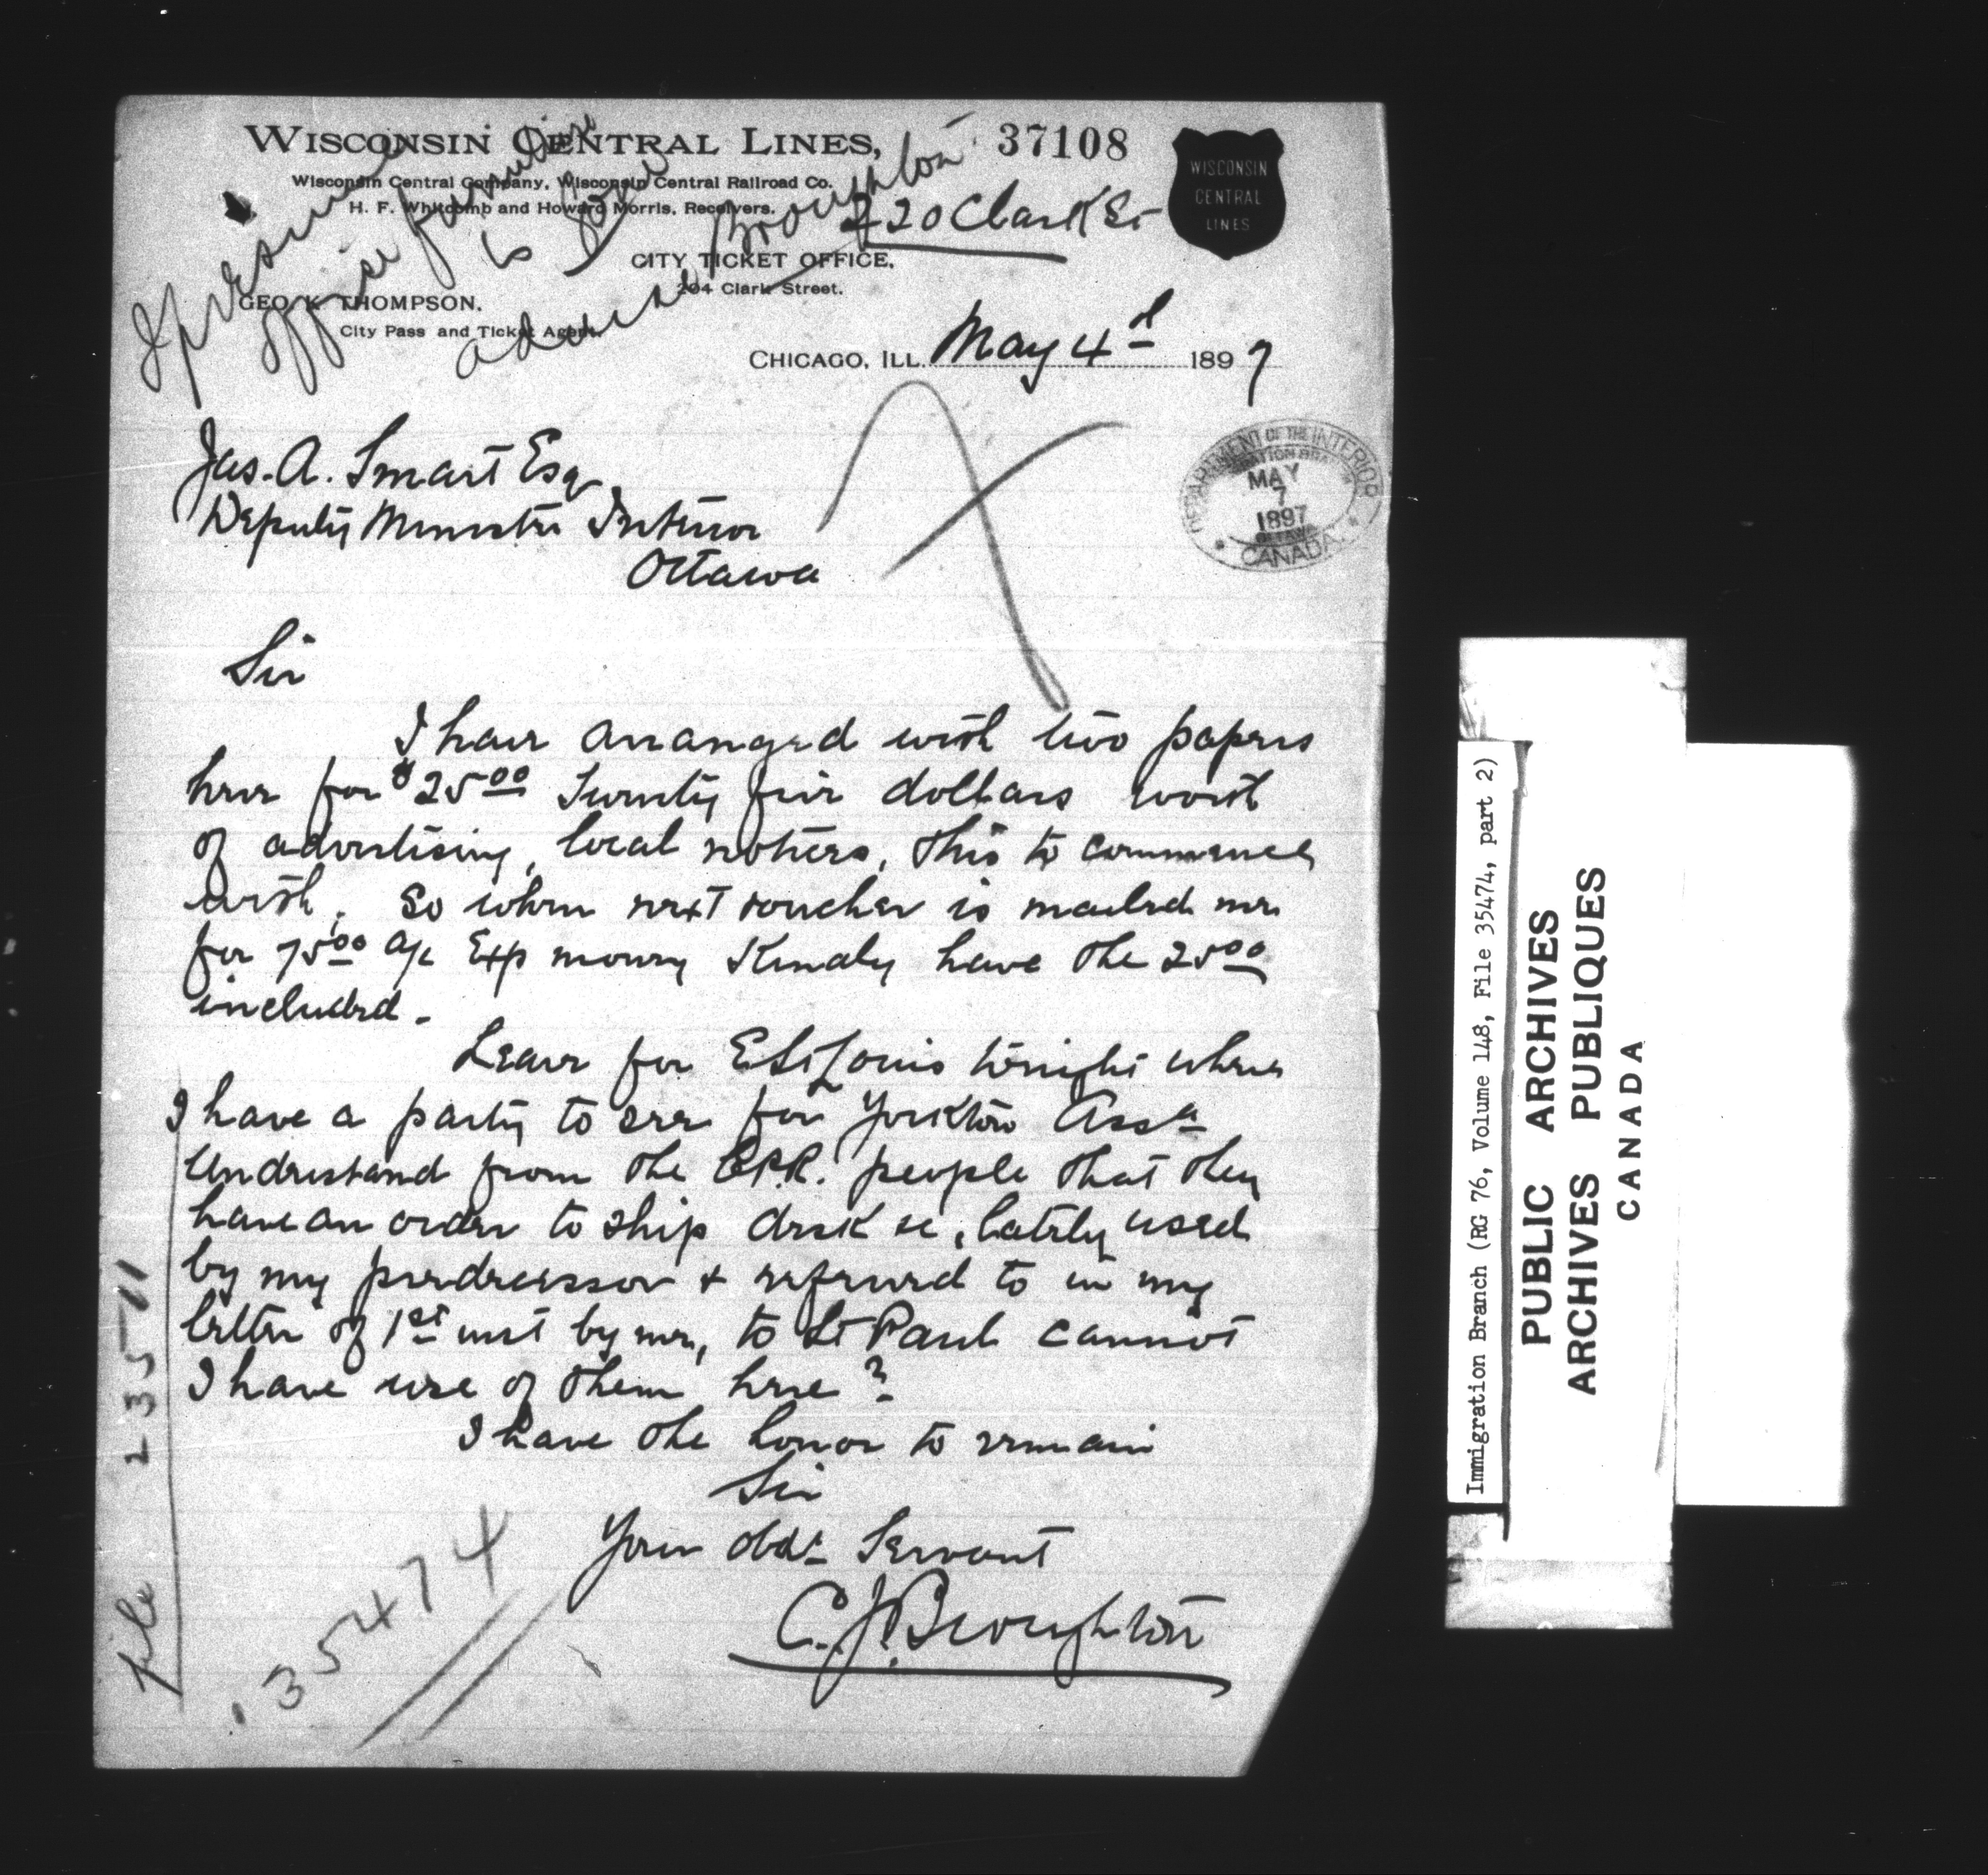 WISCONSIN CENTRAL LINES,
37108
Wisconsin Central Company, Wisconsin Central Railroad Co.
H. F. Whitcomb and Howard Morris, Receivers.
220 Clark St
WISCONSIN
CENTRAL
LINES
CITY TICKET OFFICE,
204 Clark Street.
GEO. K THOMPSON.
City Pass and Ticket Agent.
I presume
office furniture
is
advise Broughton
CHICAGO, ILL. May 4th 1897
DEPARTMENT OF THE INTERIOR
MAY
7
1897
OTTAWA
CANADA.
Jas. A. Smart Esq
Deputy Minister Interior
Ottawa
Sir
I have arranged with two papers
here for $25.00 Twenty five dollars worth
of advertising, local notices, this to commence
with. So when next voucher is mailed me
for 75.00 a/c Exp money Kindly have the 25.00
included.
Leave for E St Louis tonight where
I have a party to see for Yorkton Assa
Understand from the C.P.R. people that they
have an order to ship desk &c, lately used
by my predecessor & referred to in my
letter of 1st inst by me, to St Paul cannot
I have use of them here?
I have the honor to remain
Sir
Your obdt Servant
C. J. Broughton
file 23571
35474
Immigration Branch (RG 76, Volume 148, File 35474, part 2)
PUBLIC ARCHIVES
ARCHIVES PUBLIQUES
CANADA